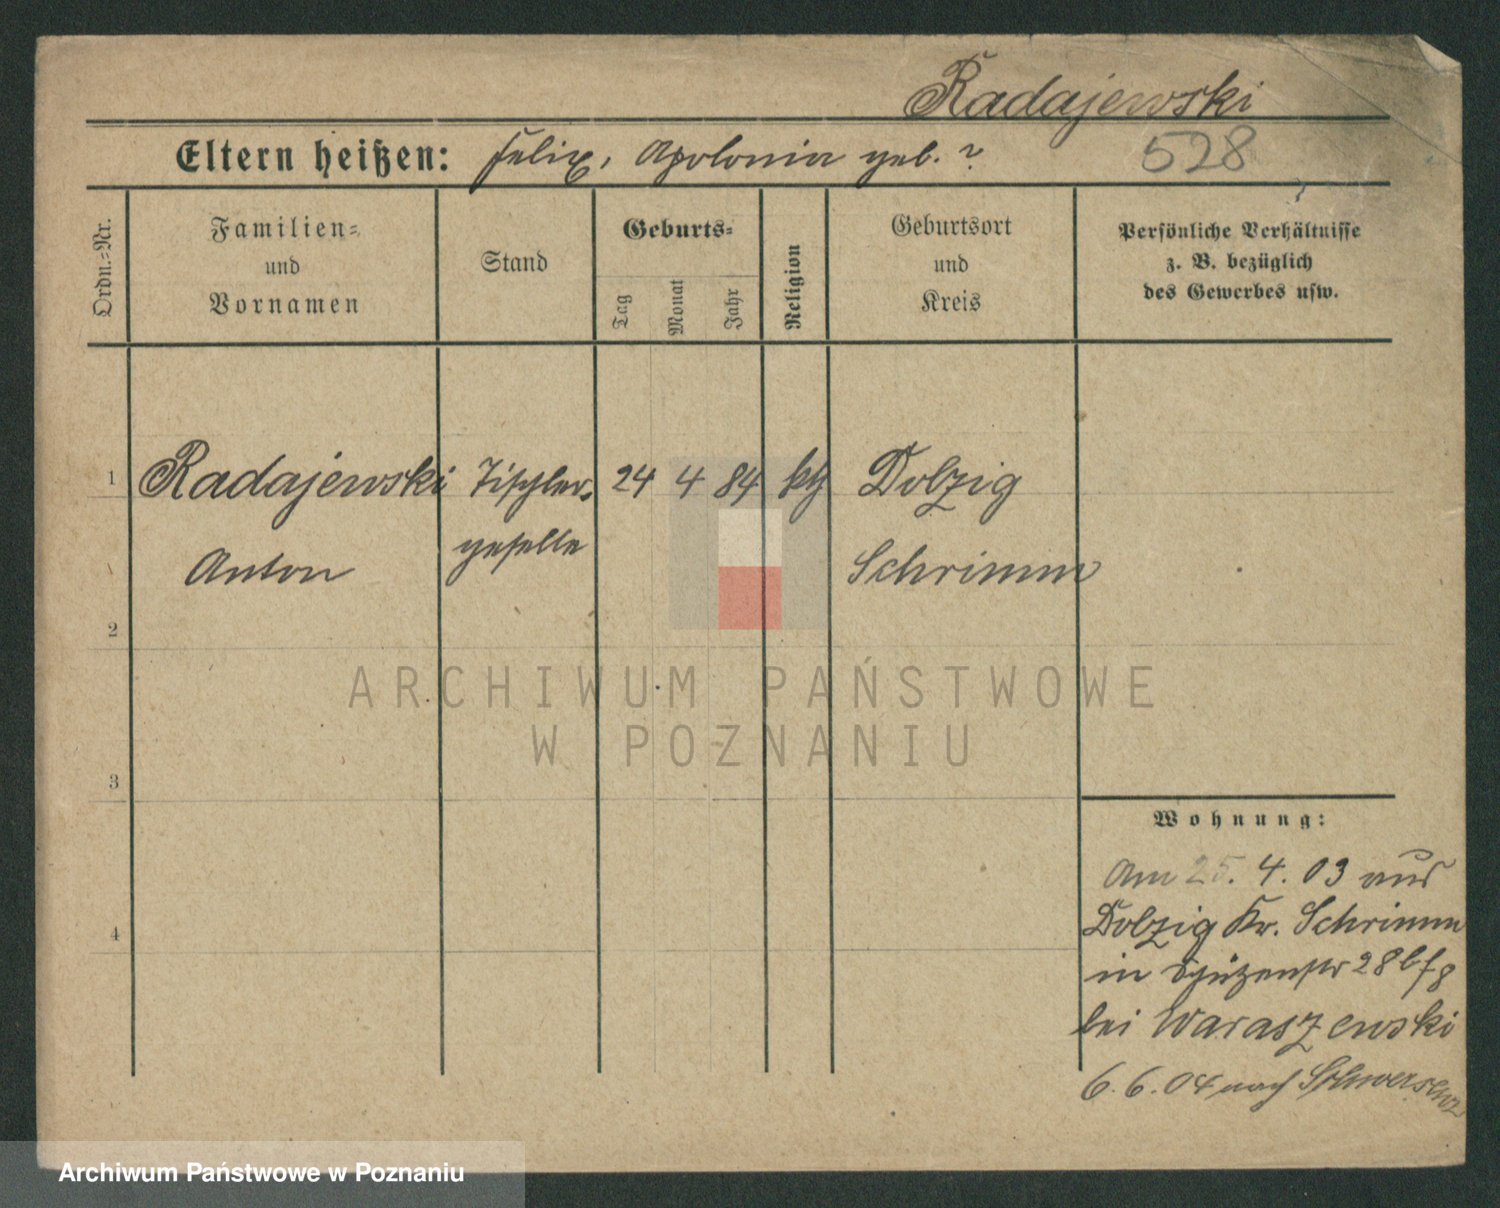 Radajewski
Eltern heißen: Felix, Apolonia geb. ?
528
Ordn.=Nr.
Familien=
und
Vornamen
Stand
Geburts=
Tag
Monat
Jahr
Religion
Geburtsort
und
Kreis
Persönliche Verhältnisse
z. B. bezüglich
des Gewerbes usw.
1
Radajewski Tischler= 24 4 84 kth Dolzig
Anton geselle Schrimm
2
ARCHIWUM PAŃSTWOWE
W POZNANIU
3
4
Wohnung:
Am 25. 4. 03 aus
Dolzig Kr. Schrimm
in Schützenstr 28b
bei Waraszewski
6.6.04 nach Schwersenz
Archiwum Państwowe w Poznaniu